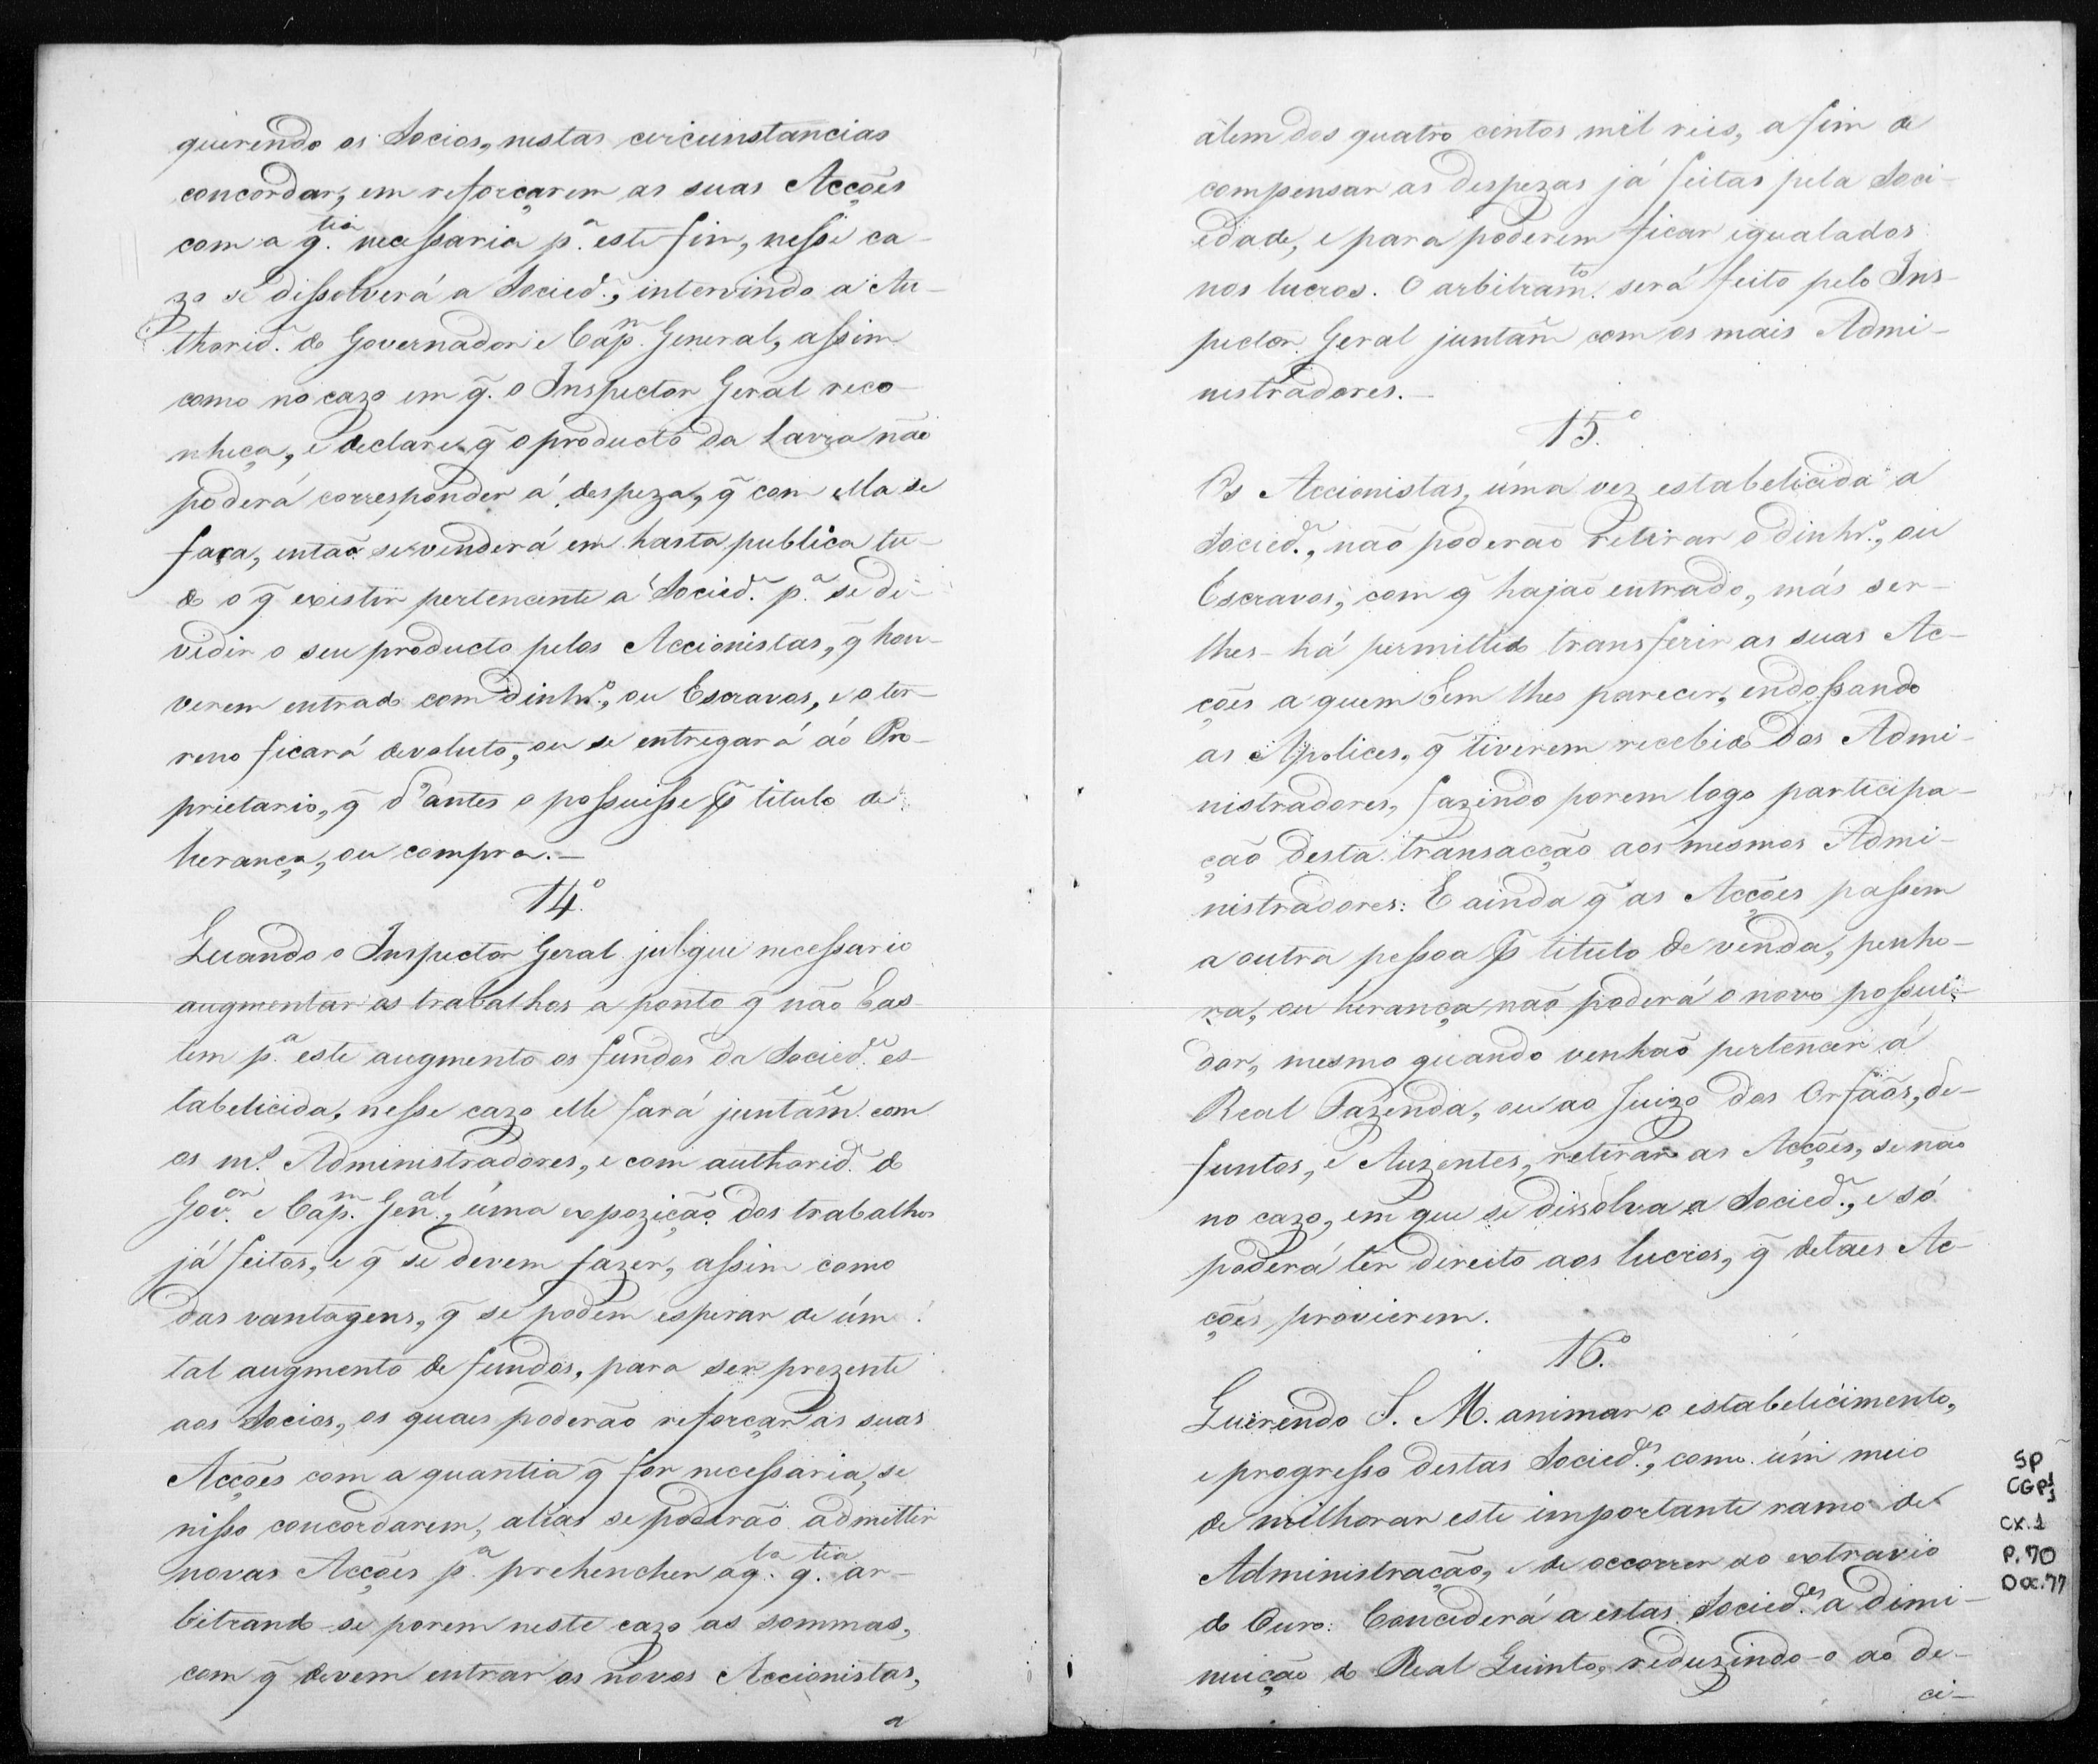 querendo os Socios, nestas circunstancias
concordar, em reforçarem as suas Acções
com a q.tia necessaria p.a este fim, nesse ca-
zo se dissolverá a Socied.e, intervindo a Au-
thorid.e do Governador e Cap.m General, assim
como no cazo em q̃. o Inspector Geral reco-
nheça, e declare q̃ o producto da Lavra não
poderá corresponder á despeza, q̃ com ella se
fara, então se venderá em hasta publica tu-
do o q̃ existir pertencente a Socied.e p.a se di-
vidir o seu producto pelos Accionistas, q̃ hou-
verem entrado com dinhr.o, ou Escravos, e o ter-
reno ficará devoluto, ou se entregará áo Pro-
prietario, q̃ d'antes o possuisse p̃ titulo de
herança, ou compra.—
14.º
Quando o Inspector Geral julgue necessario
augmentar os trabalhos a ponto q̃ não bas-
tem p.a este augmento os fundos da Socied.e es-
tabelicida, nesse cazo elle fará juntam.e com
os m.s Administradores, e com authorid.e do
Gov.or e Cap.m Gen.al, úma expozição dos trabalhos
já feitos, e q̃ se devem fazer, assim como
das vantagens, q̃ se podem esperar de úm
tal augmento de fundos, para ser prezente
aos Socios, os quaes poderão reforçar as suas
Acções com a quantia q̃ for necessaria, se
nisso concordarem, alias se poderão admittir
novas Acções p.a prehencher a q.ta q.tia ar-
bitrando-se porem neste cazo as sommas,
com q̃ devem entrar os novos Accionistas,
a
álem dos quatro centos mil reis, a fim de
compensar as despezas já feitas pela Soci-
edade, e para poderem ficar igualados
nos lucros. O arbitram.to será feito pelo Ins-
pector Geral juntam.e com os mais Admi-
nistradores.—
15.º
Os Accionistas, úma vez estabelicida a
Socied.e, não poderão retirar o dinhr.o, ou
Escravos, com q̃ hajão entrado, más ser-
lhes-há permittido transferir as suas Ac-
ções a quem bem lhes parecer, endossando
as Apolices, q̃ tiverem recebido dos Admi-
nistradores, fazindo porem logo participa-
ção desta transacção aos mesmos Admi-
nistradores: E ainda q̃ as Acções passem
a outra pessoa p̃ titulo de venda, penho-
ra, ou herança não poderá o novo possui-
dor, mesmo quando venhão pertencer á
Real Fazenda, ou ao Juizo dos Orfãos, de-
funtos, e Auzentes, retirar as Acções, se não
no cazo, em que se dissolva a Socied.e, e só
poderá ter direito aos lucros, q̃ de taes Ac-
ções provierem.
16.º
Querendo S. M. animar o estabelicimento,
e progresso destas Socied.es, como úm meio
de milhorar este importante ramo de
Administração, e de occorrer ao extravio
do Ouro: Conciderá a estas Socied.es a dimi-
nuição do Real Quinto, reduzindo-o ao de-
ci-
SP
CGP1
CX.1
P.70
Doc.77